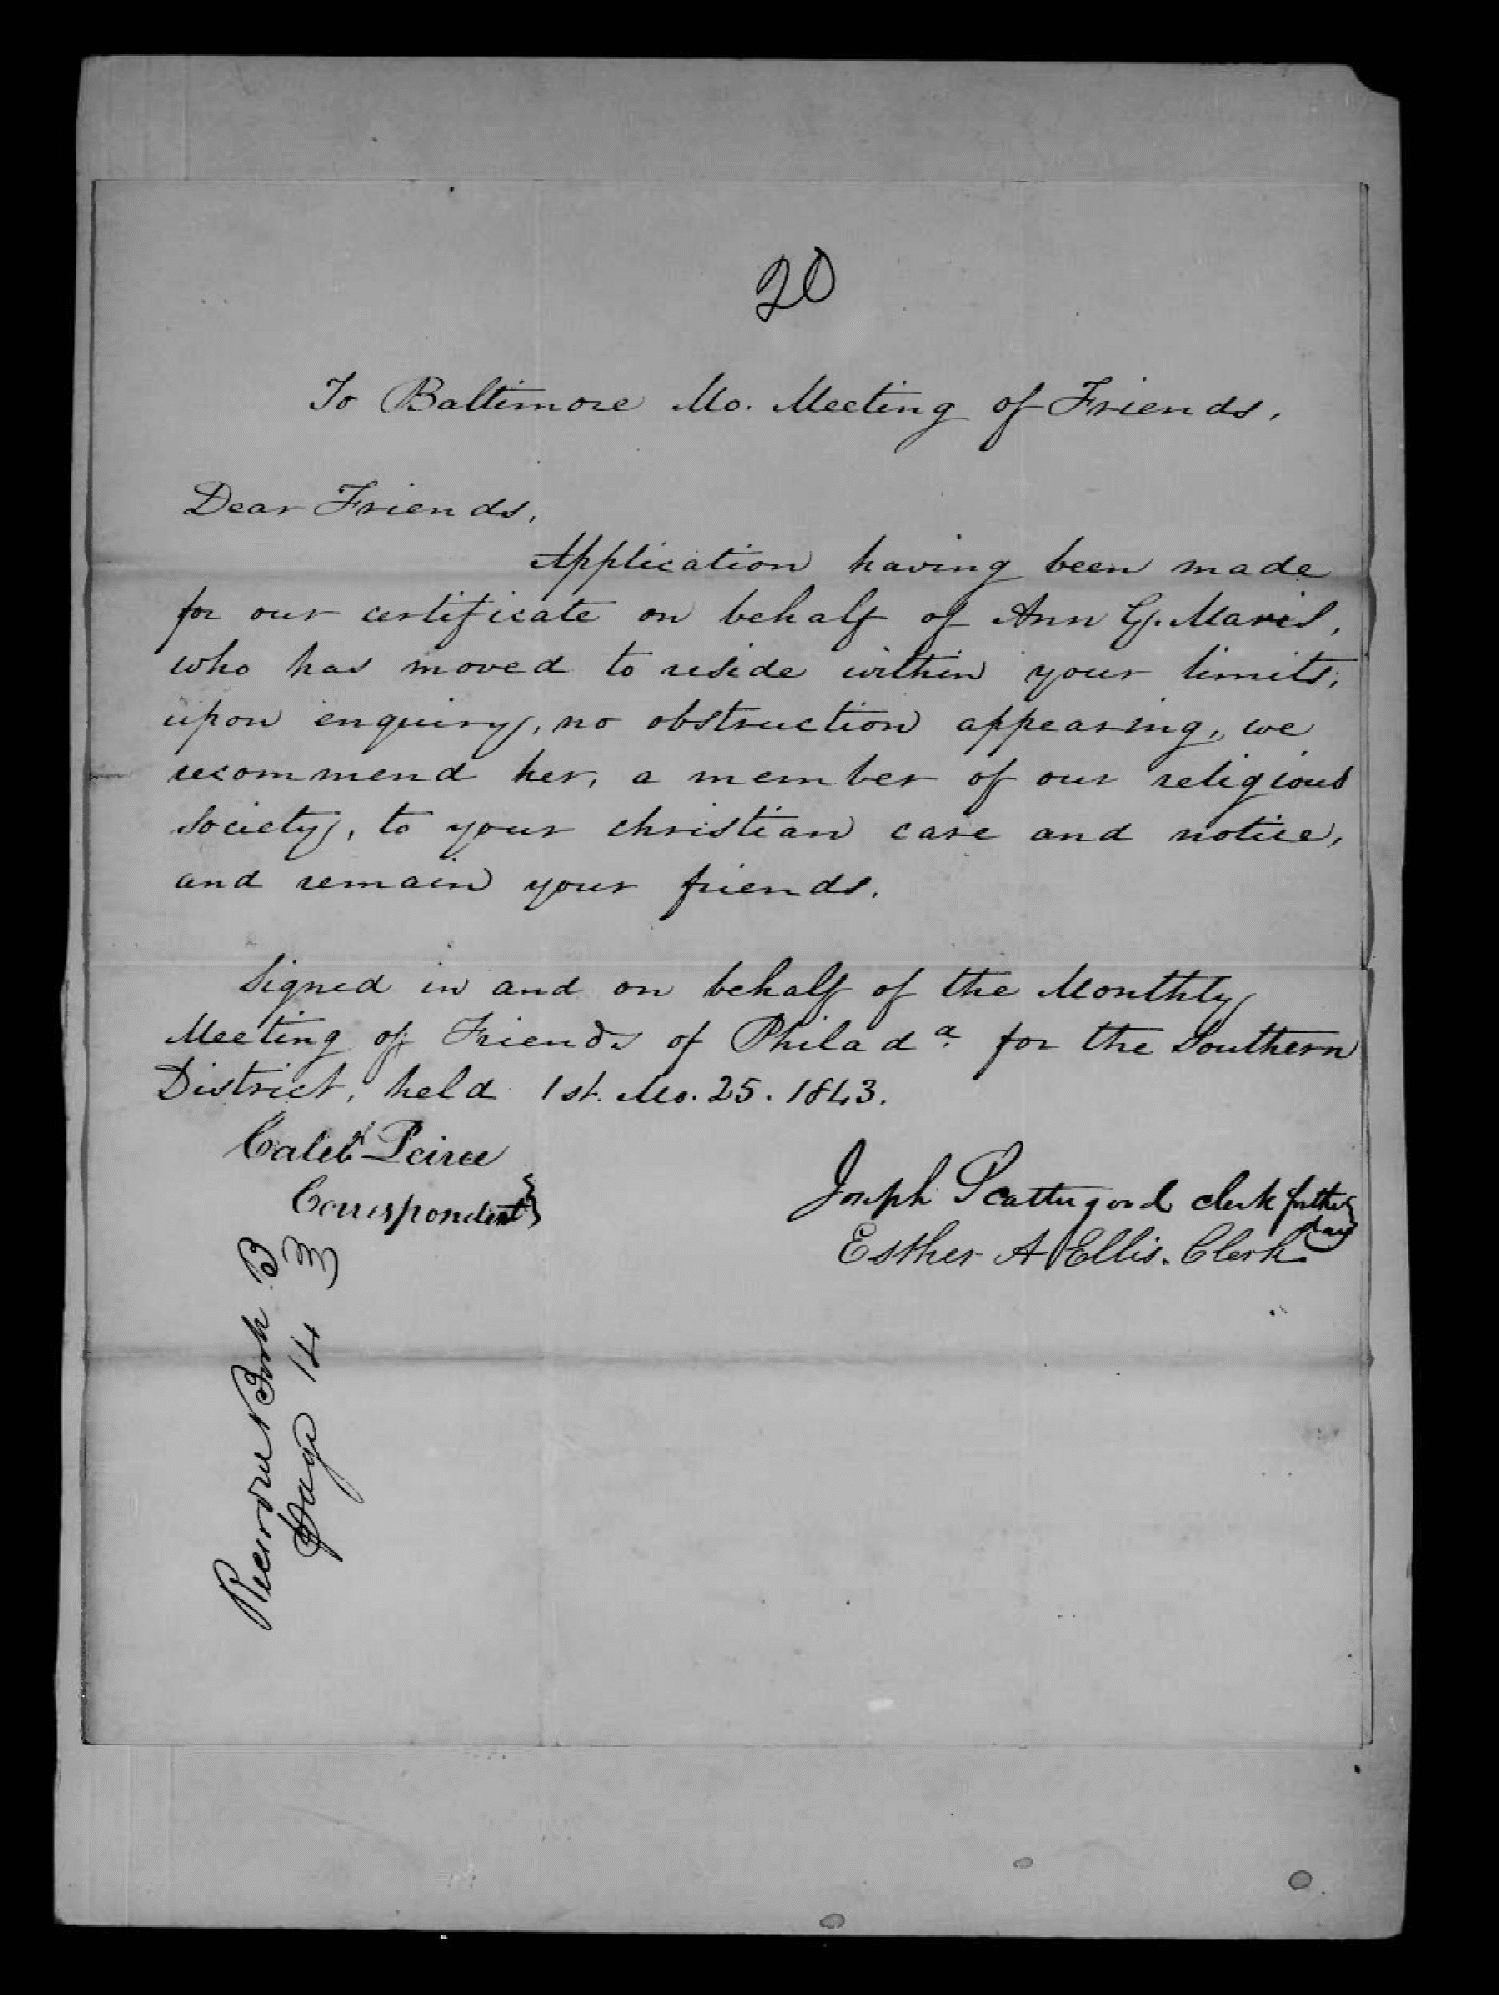 20
To Baltimore Mo. Meeting of Friends.
Dear Friends,
Application having been made
for our certificate on behalf of Ann G. Maris,
who has moved to reside within your limits;
upon enquiry, no obstruction appearing, we
recommend her, a member of our religious
society, to your christian care and notice,
and remain your friends.
Signed in and on behalf of the Monthly
Meeting of Friends of Philadᵃ for the Southern
District, held 1st. Mo. 25. 1843.
Caleb Peirce
Correspondent
Joseph Scattergood clerk for the
day
Esther A Ellis. Clerk
Record Book B
page 143